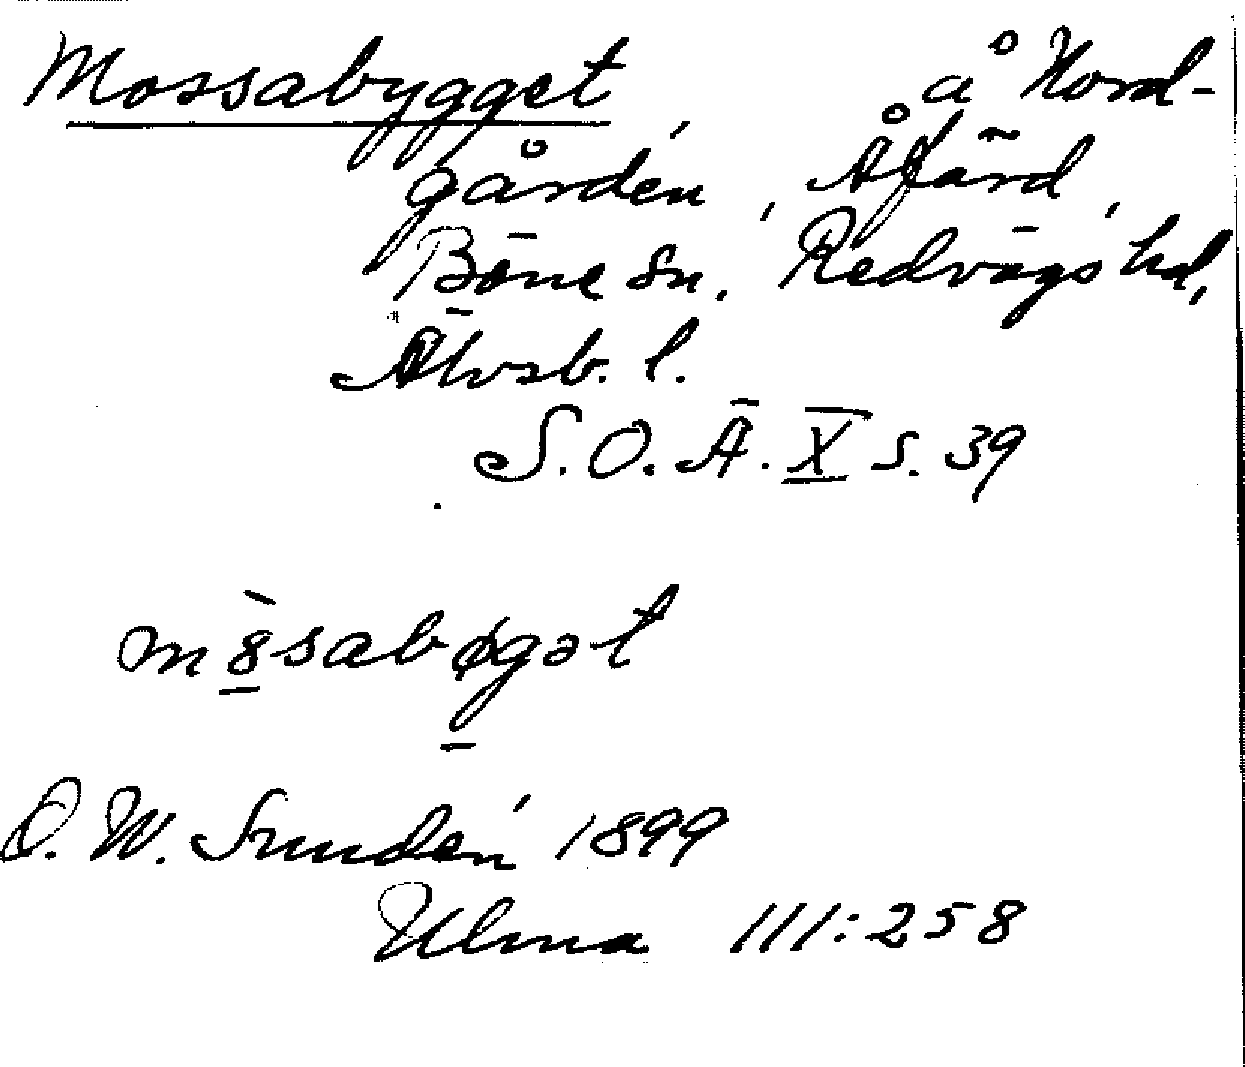 Mossabygget å Nord-
gården, Åfärd,
Böne sn, Redvägs hd,
Älvsb. l.
S. O. Ä. X s. 39
m8̀sabøgət
D. W. Sundén 1899
Ulma 111:258